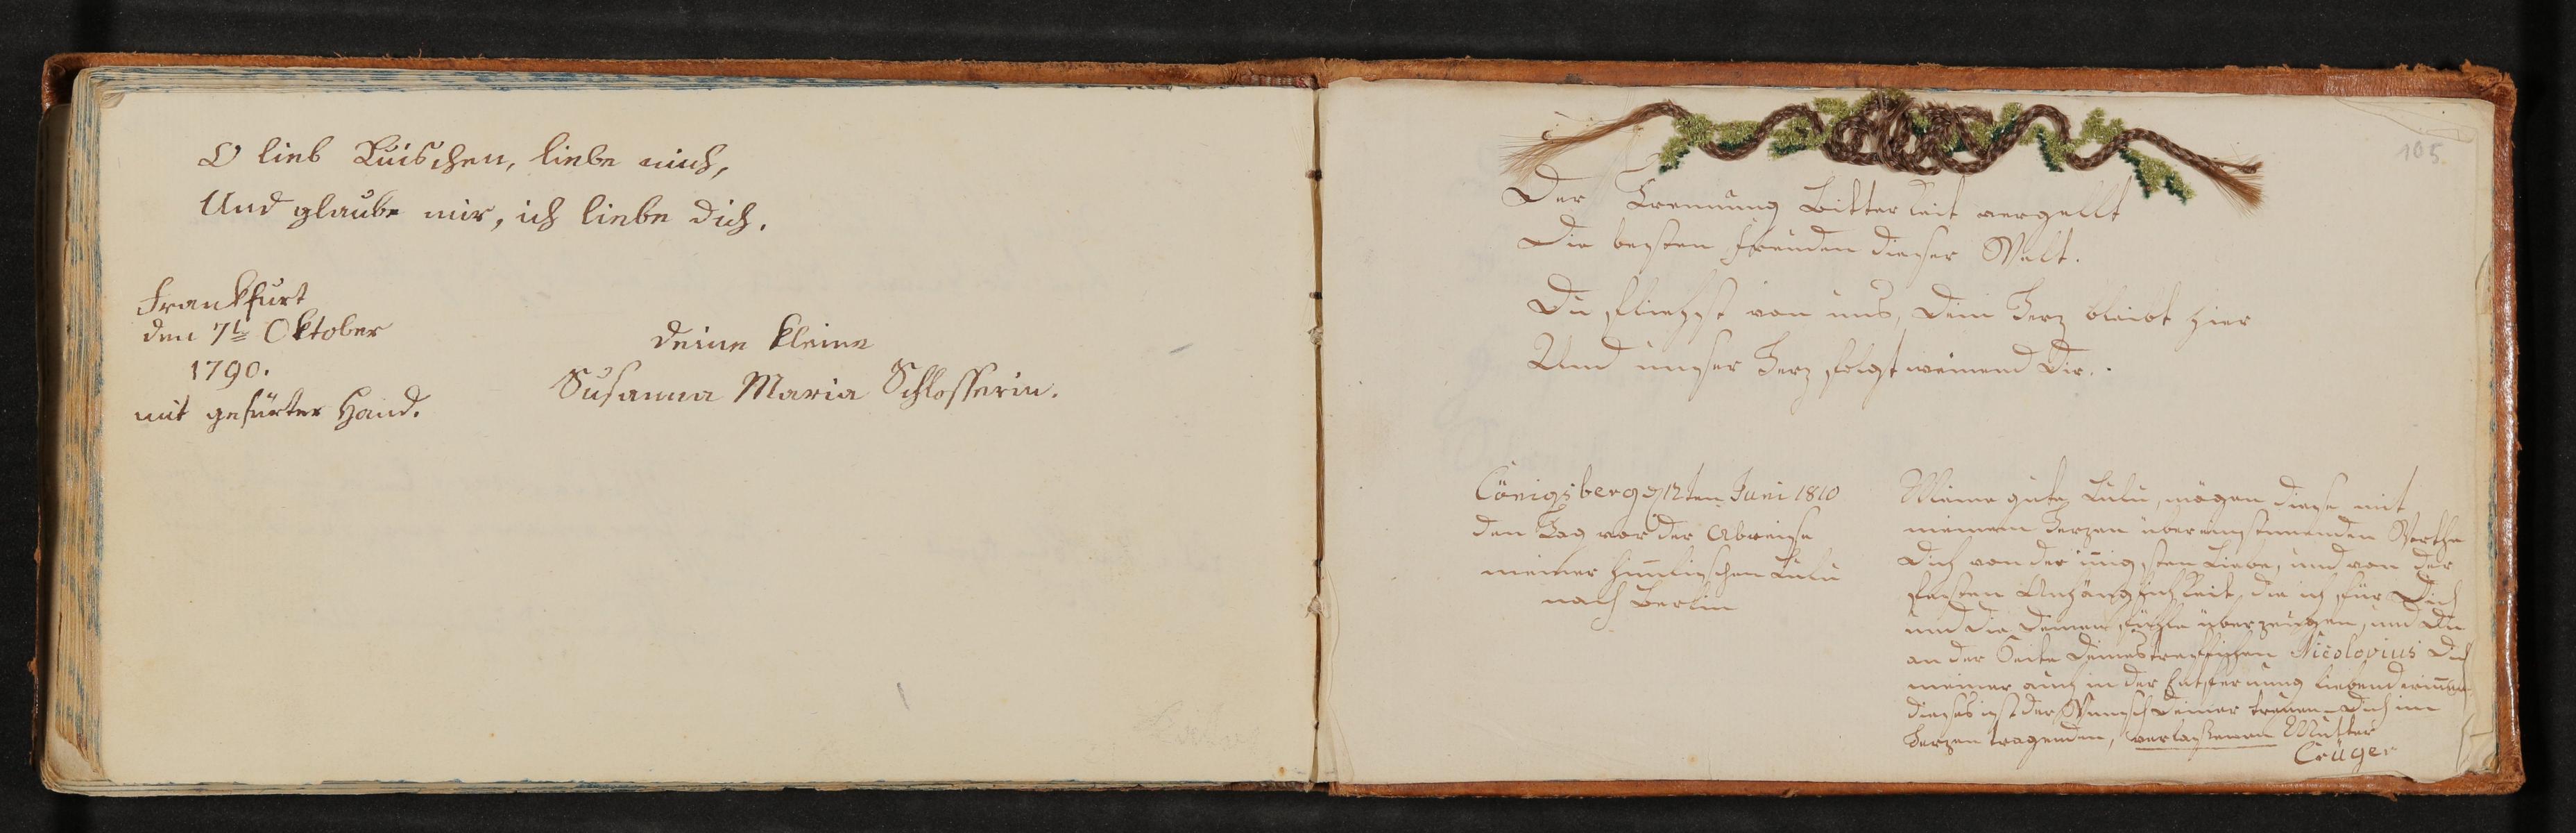 O lieb Luischen, liebe mich,
Und glaube mir, ich liebe dich.
Frankfurt
den 7t Oktober
1790.
mit gefürter Hand.
deine kleine
Susanna Maria Schlosserin.
105
Der Trennung Bitterkeit vergällt
Die besten Freuden dieser Welt.
Du fliehst von uns, Dein Herz bleibt hier
Und unser Herz folgt weinend Dir.
Cönigsberg 12ten Juni 1810
den Tag vor der Abreise
meiner himlischen Lulu
nach Berlin
Meine gute Lulu, mögen diese mit
meinem Herzen übereinstimenden Worthe
Dich von der inigsten Liebe, und von der
festen Anhänglichkeit, die ich für Dich
und die Deinen fühle überzeugen, und Du
an der Seite Deines treflichen Nicolovius Dich
meiner auch in der Entfernung liebend erinern
dieses ist der Wunsch Deiner treuen Dich im
Herzen tragenden, verlassenen Mutter
Crüger